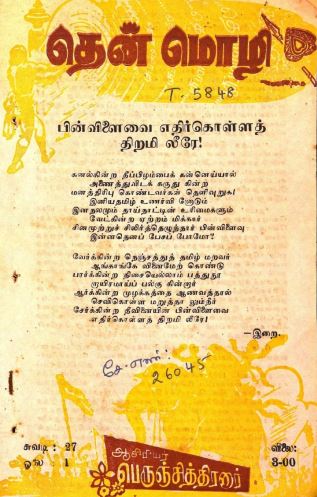 தென் மொழி
T. 5848
பின்விளைவை எதிர்கொள்ளத்
திறமி லீரே!
கனல்கின்ற தீப்பிழம்பைக் கன்னெய்யால்
அணைத்துவிடக் கருது கின்ற
மனத்திரிபு கொண்டவர்கள் தெளிவுறுக!
இனியதமிழ் உணர்வி னோடும்
இனநலமும் தாய்நாட்டின் உரிமைகளும்
வேட்கின்ற ஏற்றம் மிக்கார்
சினமுற்றுச் சிலிர்த்தெழுந்தார் பின்விளைவு
இன்னதெனப் பேசப் போமோ?
வேர்க்கின்ற நெஞ்சத்துத் தமிழ் மறவர்
ஆங்காங்கே வினைமேற் கொண்டு
பார்க்கின்ற திசையெல்லாம் பத்துநூ
றாயிரமாய்ப் பல்கு கின்றார்
ஆர்க்கின்ற முழக்கத்தை ஆணவத்தால்
செவிகொள்ள மறுத்தா லுந்நீர்
சேர்க்கின்ற தீவினையின் பின்விளைவை
எதிர்கொள்ளத் திறமி லீரே!
—இறை.
சே. எண்:
26045
சுவடி : 27
ஓலை : 1
விலை:
3-00
ஆசிரியர்
பெருஞ்சித்திரனார்